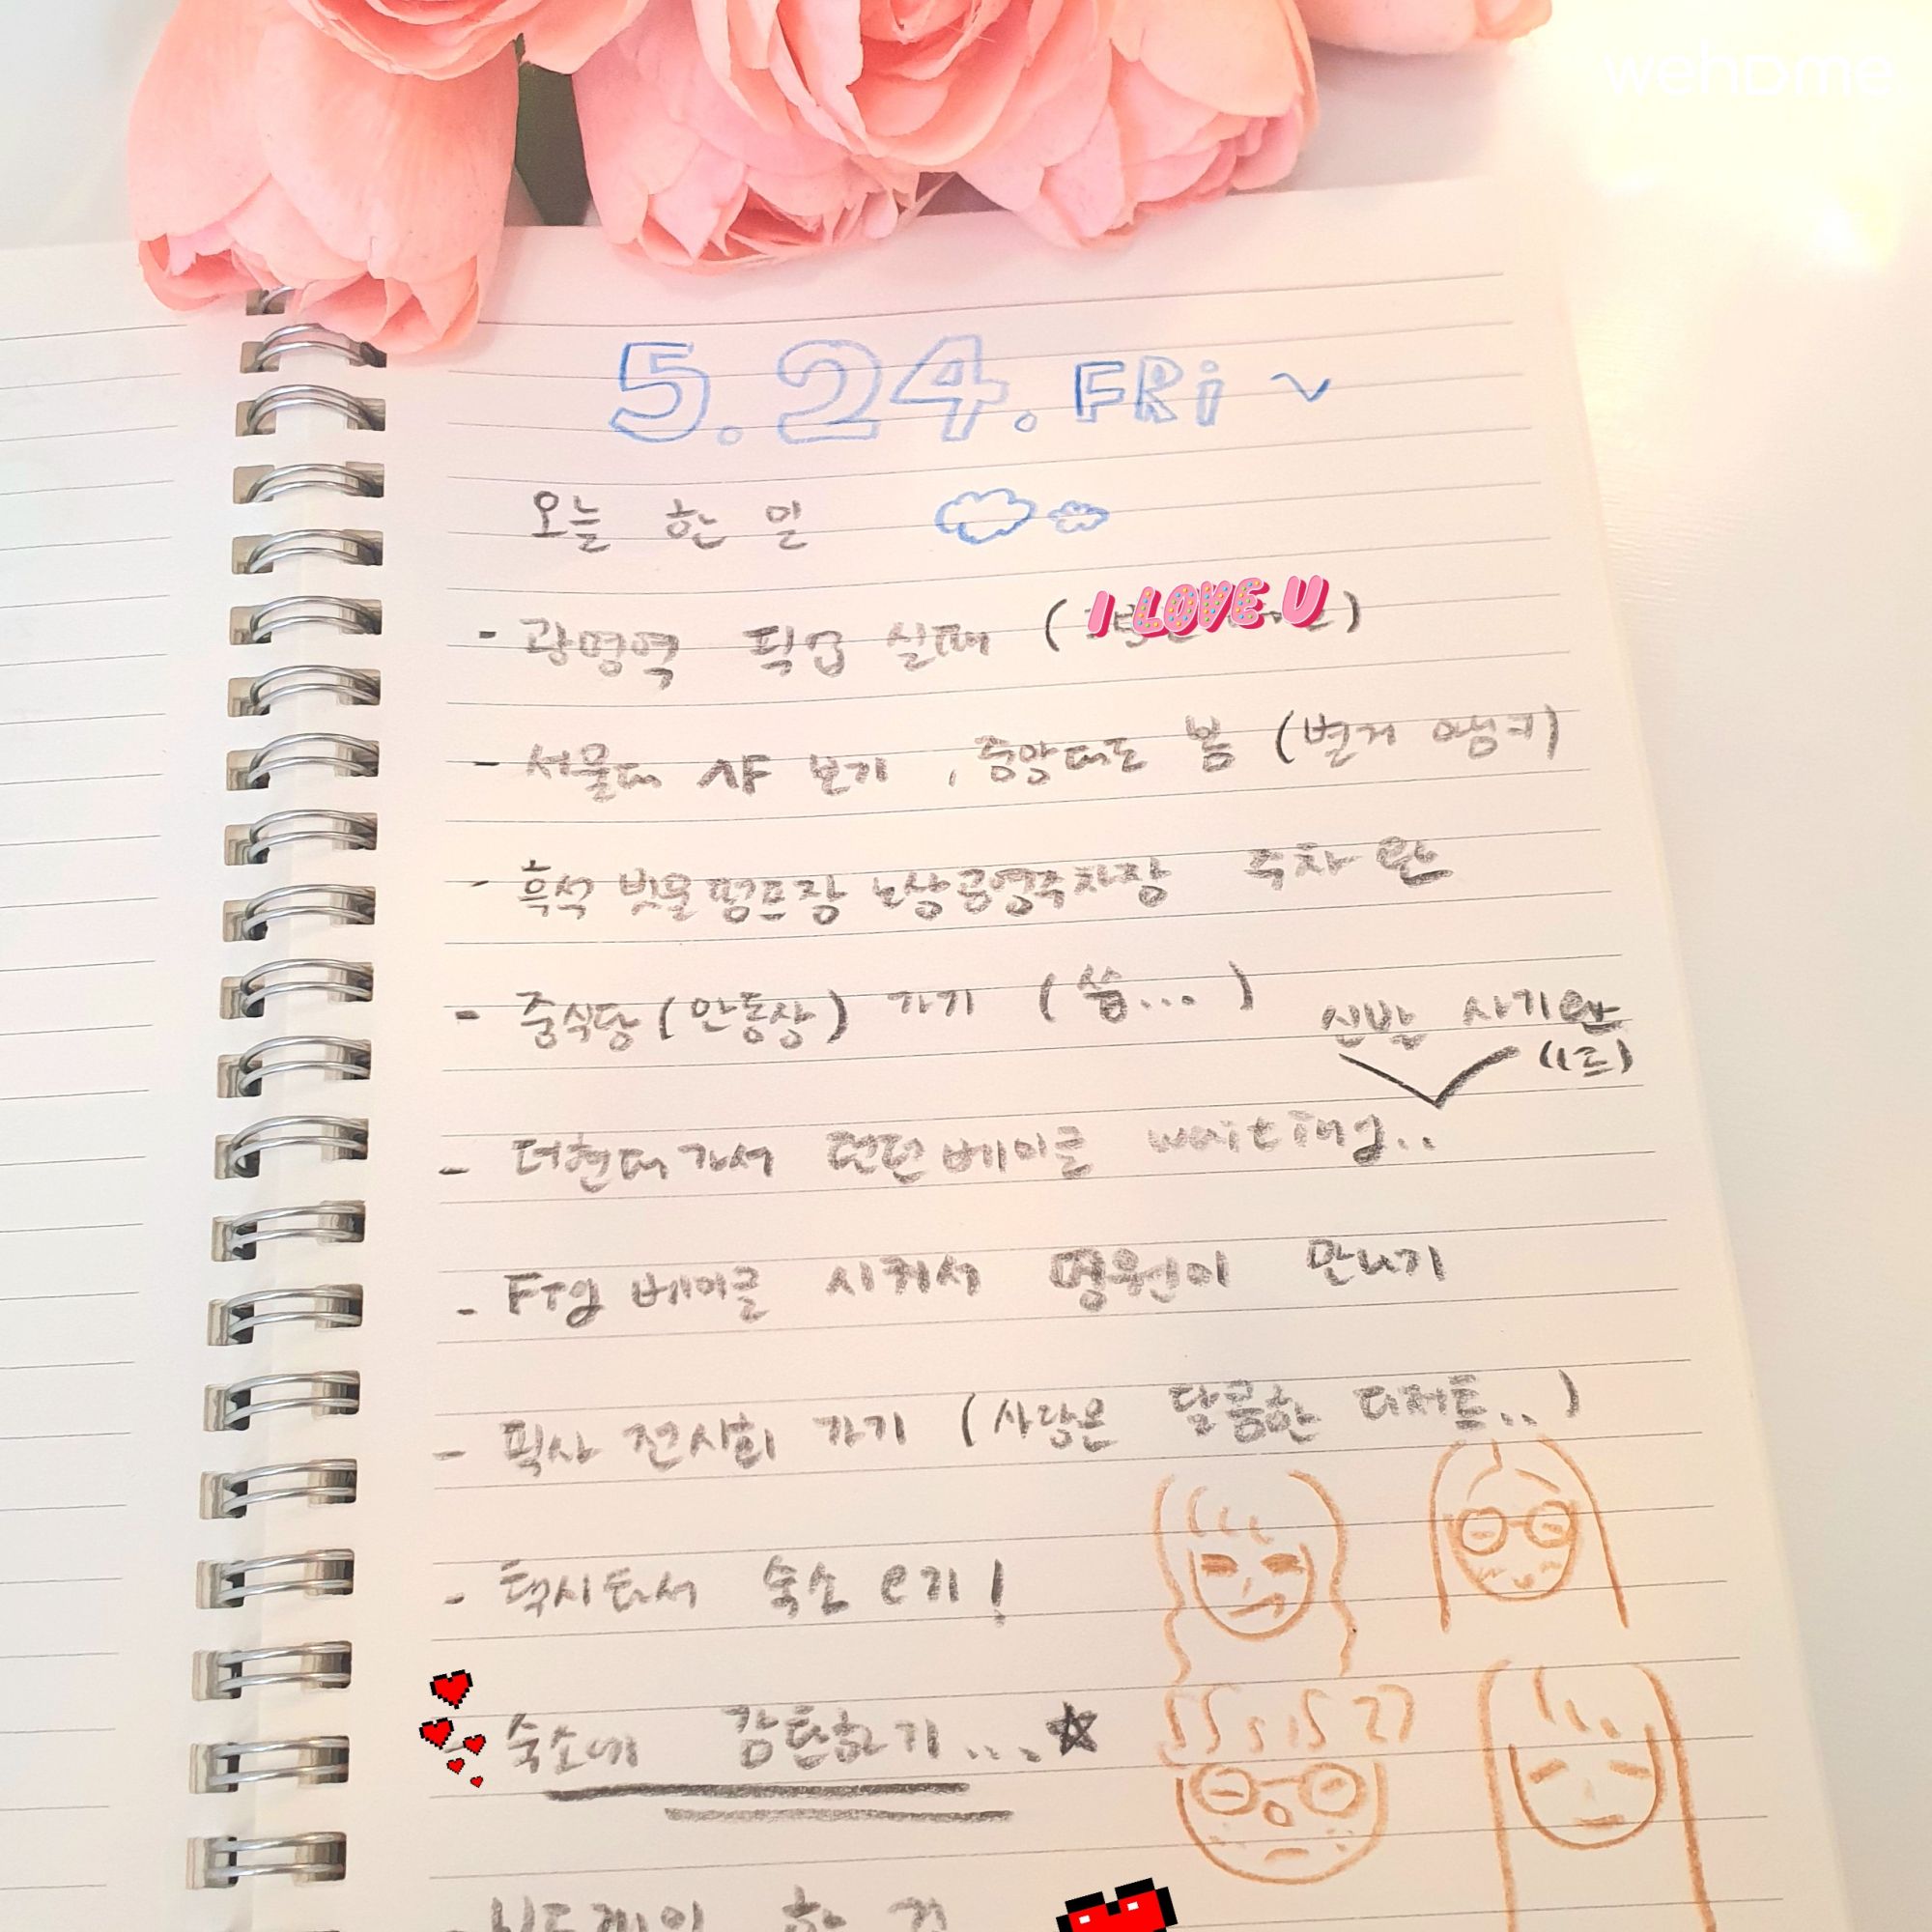 wehome
5.24.FRi ~
오늘 한 일
- 광명역 픽업 실패 ( I LOVE U )
- 서울대 AF 보기 , 중앙대도 봄 (별거 아닝기)
- 흑석 빗물펌프장 노상공영주차장 주차 완
- 중식당 (안동장) 가기 ( 씁... )
신발 사기 완
(나도)
- 더현대 가서 런던베이글 waiting..
- Frg 베이글 시켜서 명원이 만나기
- 픽사 전시회 가기 (사랑은 달콤한 디저트..)
- 택시타서 숙소 오기!
- 숙소에 감탄하기...☆